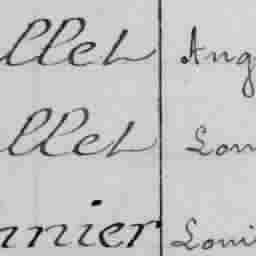 llet Ang
llet Lou
nnier Loui